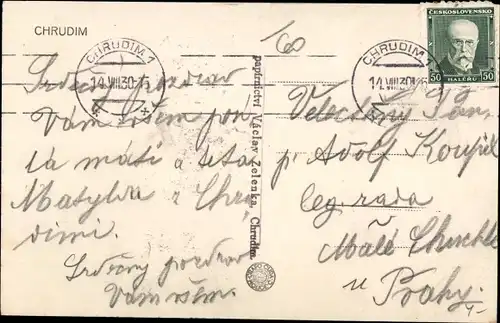 CHRUDIM
ČESKOSLOVENSKO
50 HALÉŘŮ 50
CHRUDIM 1
14.VIII.30
CHRUDIM 1
14.VIII.30
60
Srdečný pozdrav
Vám všem
máti a teta
Matylda z Chru
dimi.
Srdečný pozdrav
Vám všem.
papírnictví Václav Zelenka, Chrudim.
Velectěný Pán
p. Adolf Koupil
leg. rada
Malé Chuchle
u Prahy